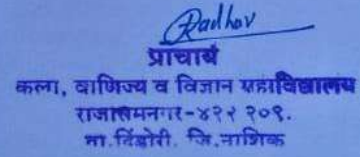 प्राचार्य
कला, वाणिज्य व विज्ञान महाविद्यालय
राजारामनगर-४२२ २०९.
ता.दिंडोरी. जि.नाशिक